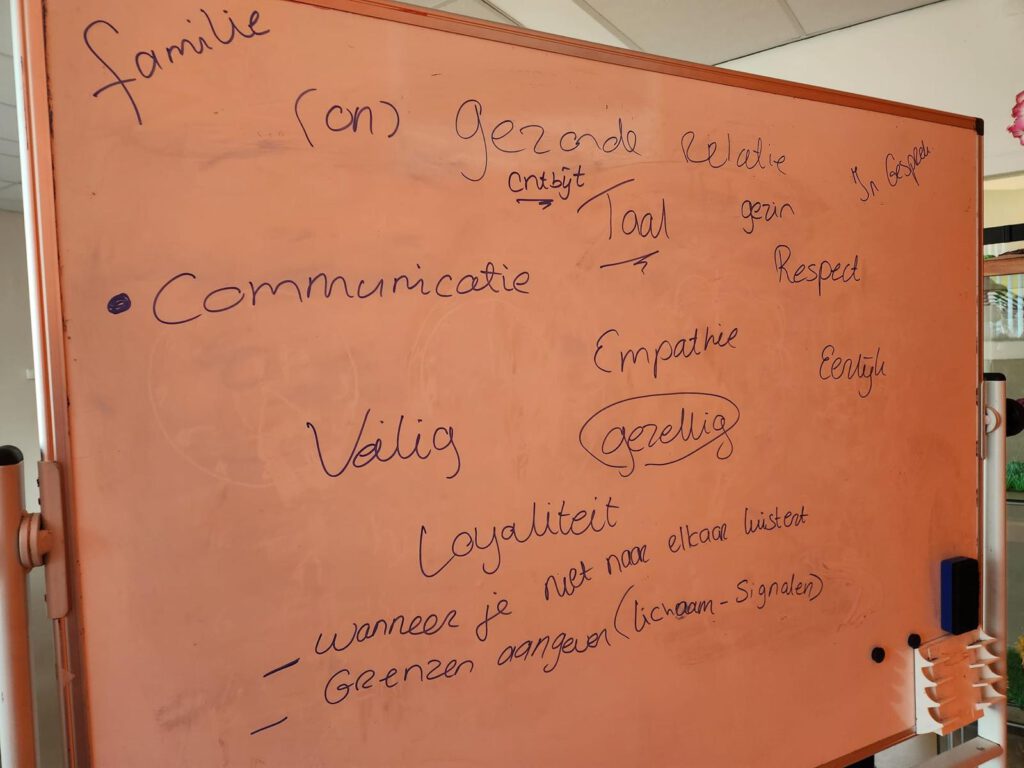 familie
(on) gezonde relatie
In Gesprek
ontbijt
Taal
gezin
• Communicatie
Respect
Empathie
Eerlijk
Veilig
gezellig
Loyaliteit
- wanneer je niet naar elkaar luistert
- Grenzen aangeven (lichaam-Signalen)